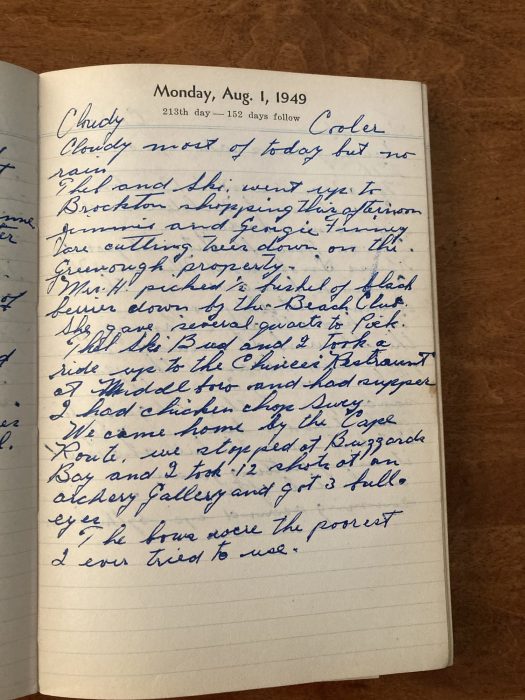 Monday, Aug. 1, 1949
213th day — 152 days follow
Cloudy Cooler
Cloudy most of today but no
rain.
Thel and Ski. went up to
Brockton shopping this afternoon
Jimmie and Georgie Finney
are cutting down on the.
Greenough property.
Mrs H picked ½ bushel of black
berries down by the Beach Club.
She gave several quarts to Pick.
Thel Ski Bud and I took a
ride up to the Chinees Restraunt
at Middlboro and had supper
I had chicken chop suey.
We came home by the Cape
Route, we stopped at Buzzards
Bay and I took 12 shots at an
archery Gallery and got 3 bulls
eyes
The bows were the poorest
I ever tried to use.